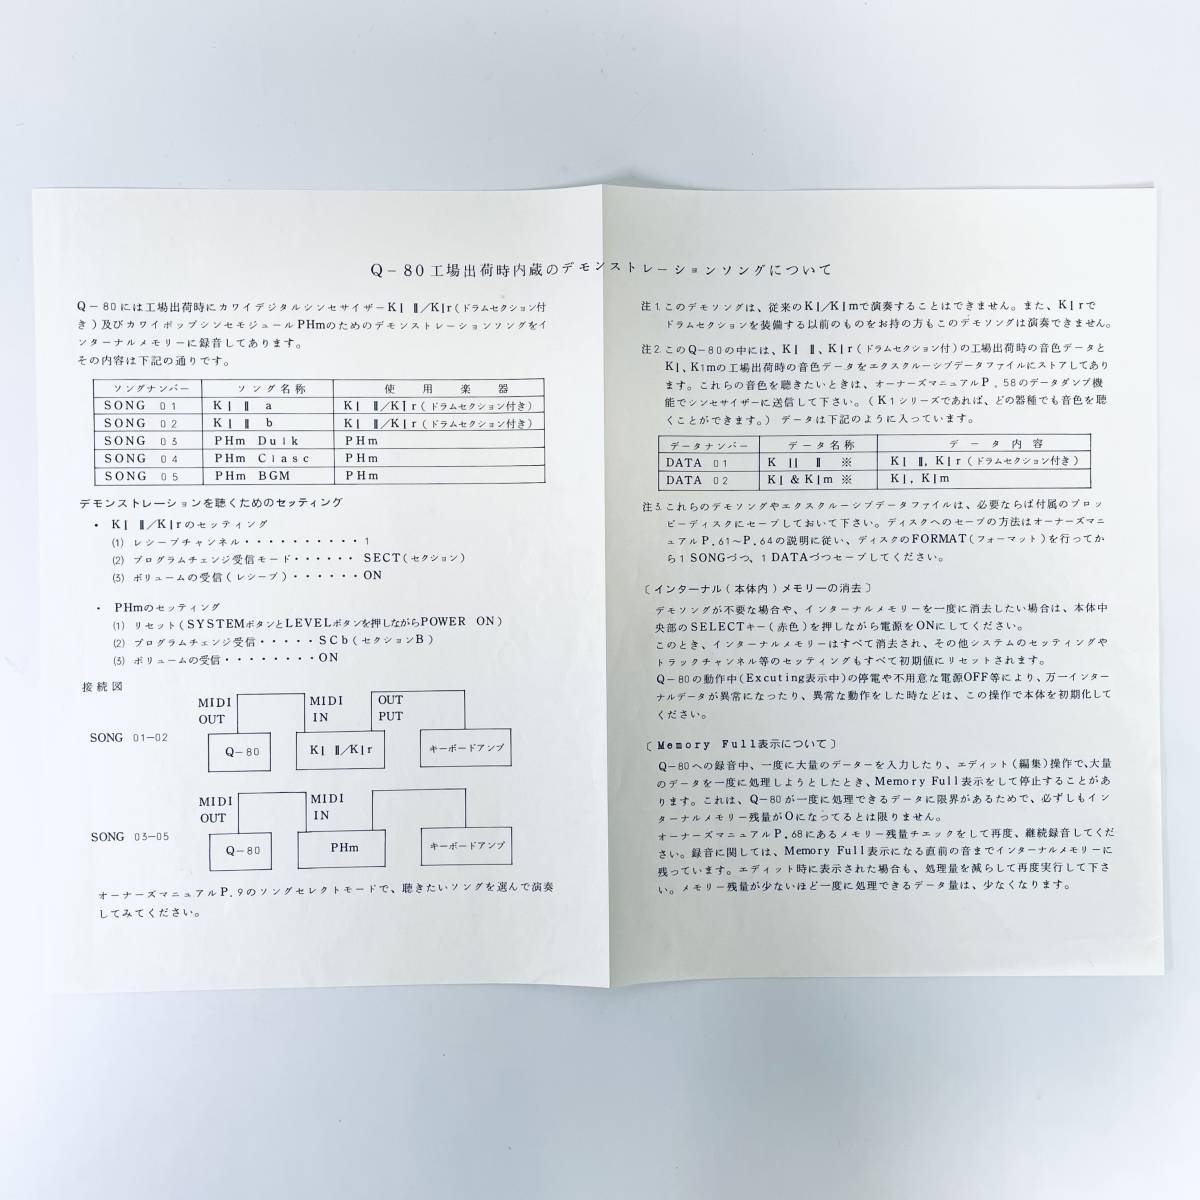 Q-80工場出荷時内蔵のデモンストレーションソングについて
Q-80には工場出荷時にカワイデジタルシンセサイザーK1 Ⅱ/K1r(ドラムセクション付
き)及びカワイポップシンセモジュールPHmのためのデモンストレーションソングをイ
ンターナルメモリーに録音してあります。
その内容は下記の通りです。
ソングナンバー ソング名称 使用楽器
SONG 01 K1 Ⅱ a K1 Ⅱ/K1r(ドラムセクション付き)
SONG 02 K1 Ⅱ b K1 Ⅱ/K1r(ドラムセクション付き)
SONG 03 PHm Duik PHm
SONG 04 PHm Ciasc PHm
SONG 05 PHm BGM PHm
デモンストレーションを聴くためのセッティング
・ K1 Ⅱ/K1rのセッティング
(1) レシーブチャンネル・・・・・・・・・・1
(2) プログラムチェンジ受信モード・・・・・・ SECT(セクション)
(3) ボリュームの受信(レシーブ)・・・・・・ON
・ PHmのセッティング
(1) リセット(SYSTEMボタンとLEVELボタンを押しながらPOWER ON)
(2) プログラムチェンジ受信・・・・・SCb(セクションB)
(3) ボリュームの受信・・・・・・・・ON
接続図
MIDI OUT MIDI IN OUT PUT
SONG 01-02 Q-80 K1 Ⅱ/K1r キーボードアンプ
MIDI OUT MIDI IN
SONG 03-05 Q-80 PHm キーボードアンプ
オーナーズマニュアルP.9のソングセレクトモードで、聴きたいソングを選んで演奏
してみてください。
注1.このデモソングは、従来のK1/K1mで演奏することはできません。また、K1rで
ドラムセクションを装備する以前のものをお持の方もこのデモソングは演奏できません。
注2.このQ-80の中には、K1 Ⅱ、K1r(ドラムセクション付)の工場出荷時の音色データと
K1、K1mの工場出荷時の音色データをエクスクルーシブデータファイルにストアしてあり
ます。これらの音色を聴きたいときは、オーナーズマニュアルP.58のデータダンプ機
能でシンセサイザーに送信して下さい。(K1シリーズであれば、どの器種でも音色を聴
くことができます。)データは下記のように入っています。
データナンバー データ名称 データ内容
DATA 01 K 11 Ⅱ ※ K1 Ⅱ, K1r(ドラムセクション付き)
DATA 02 K1 & K1m ※ K1, K1m
注3.これらのデモソングやエクスクルーシブデータファイルは、必要ならば付属のフロッ
ピーディスクにセーブしておいて下さい。ディスクへのセーブの方法はオーナーズマニ
ュアルP.61~P.64の説明に従い、ディスクのFORMAT(フォーマット)を行ってか
ら1 SONGづつ、1 DATAづつセーブしてください。
〔インターナル(本体内)メモリーの消去〕
デモソングが不要な場合や、インターナルメモリーを一度に消去したい場合は、本体中
央部のSELECTキー(赤色)を押しながら電源をONにしてください。
このとき、インターナルメモリーはすべて消去され、その他システムのセッティングや
トラックチャンネル等のセッティングもすべて初期値にリセットされます。
Q-80の動作中(Excuting表示中)の停電や不用意な電源OFF等により、万一インター
ナルデータが異常になったり、異常な動作をした時などは、この操作で本体を初期化して
ください。
〔Memory Full表示について〕
Q-80への録音中、一度に大量のデーターを入力したり、エディット(編集)操作で、大量
のデータを一度に処理しようとしたとき、Memory Full表示をして停止することがあ
ります。これは、Q-80が一度に処理できるデータに限界があるためで、必ずしもイン
ターナルメモリー残量が0になってるとは限りません。
オーナーズマニュアルP.68にあるメモリー残量チエックをして再度、継続録音してくだ
さい。録音に関しては、Memory Full表示になる直前の音までインターナルメモリーに
残っています。エディット時に表示された場合も、処理量を減らして再度実行して下さ
い。メモリー残量が少ないほど一度に処理できるデータ量は、少なくなります。